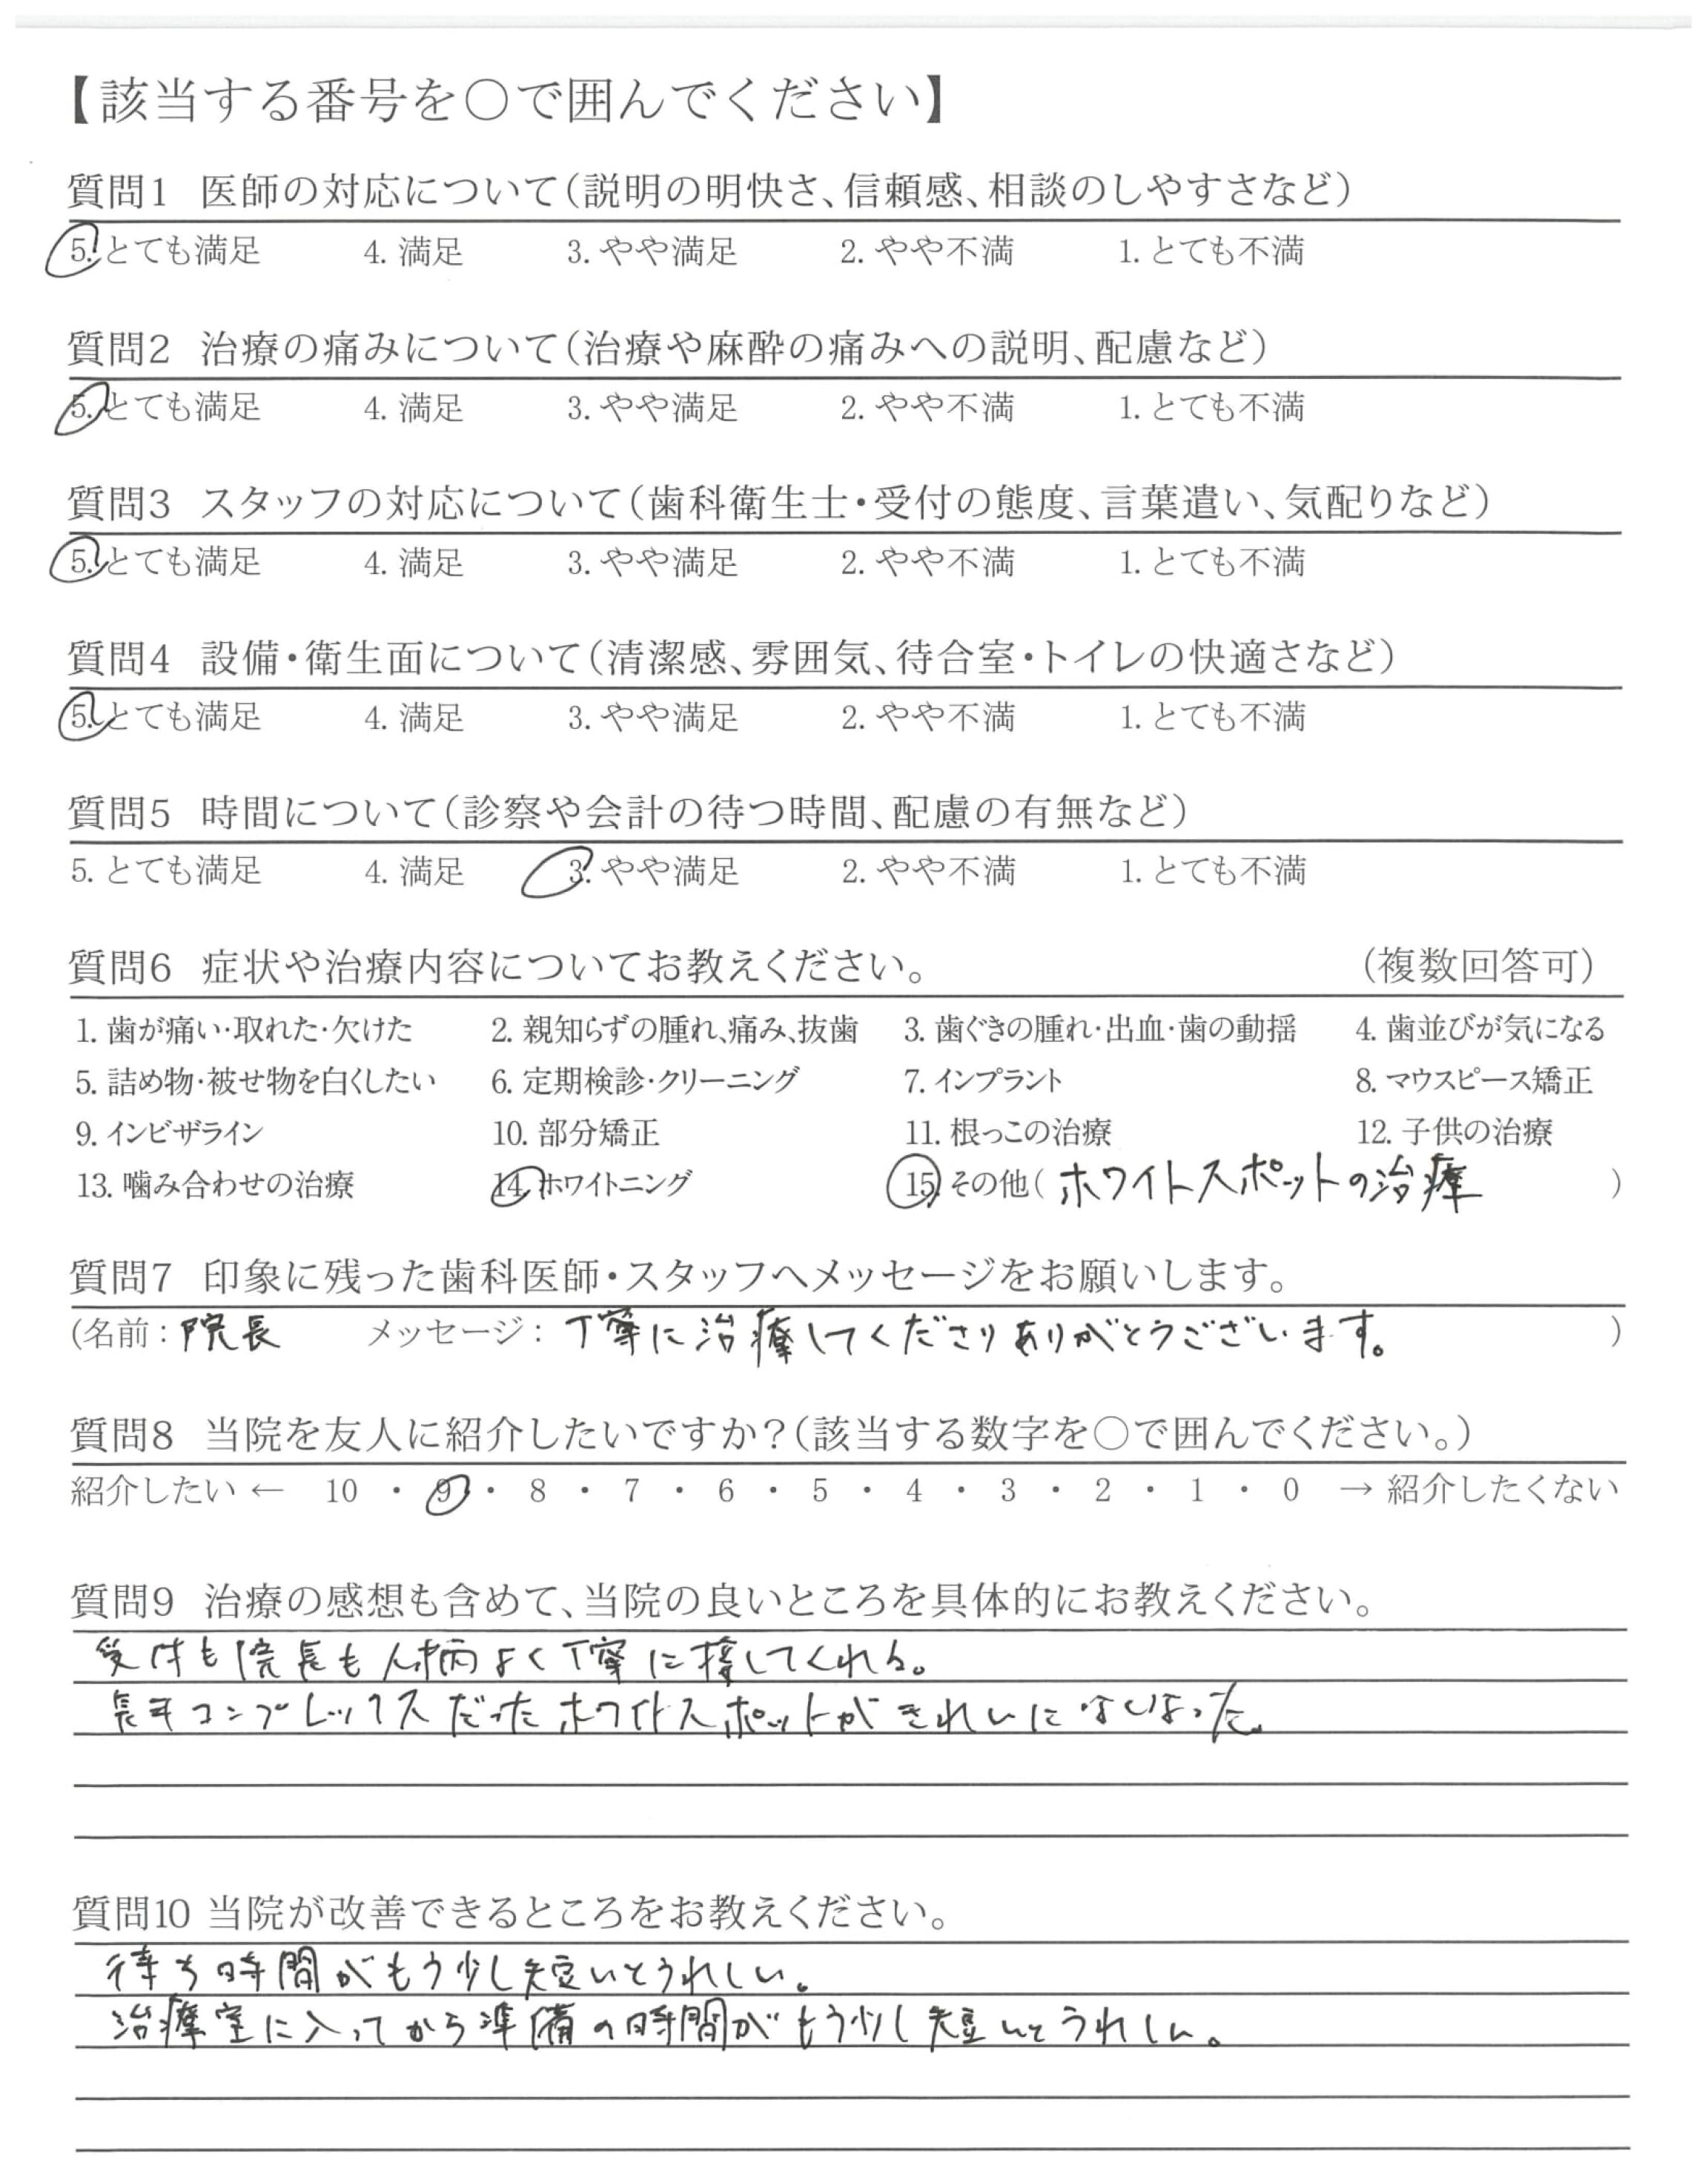 【該当する番号を○で囲んでください】
質問1 医師の対応について(説明の明快さ、信頼感、相談のしやすさなど)
5. とても満足 4. 満足 3. やや満足 2. やや不満 1. とても不満
質問2 治療の痛みについて(治療や麻酔の痛みへの説明、配慮など)
5. とても満足 4. 満足 3. やや満足 2. やや不満 1. とても不満
質問3 スタッフの対応について(歯科衛生士・受付の態度、言葉遣い、気配りなど)
5. とても満足 4. 満足 3. やや満足 2. やや不満 1. とても不満
質問4 設備・衛生面について(清潔感、雰囲気、待合室・トイレの快適さなど)
5. とても満足 4. 満足 3. やや満足 2. やや不満 1. とても不満
質問5 時間について(診察や会計の待つ時間、配慮の有無など)
5. とても満足 4. 満足 3. やや満足 2. やや不満 1. とても不満
質問6 症状や治療内容についてお教えください。 (複数回答可)
1. 歯が痛い・取れた・欠けた 2. 親知らずの腫れ、痛み、抜歯 3. 歯ぐきの腫れ・出血・歯の動揺 4. 歯並びが気になる
5. 詰め物・被せ物を白くしたい 6. 定期検診・クリーニング 7. インプラント 8. マウスピース矯正
9. インビザライン 10. 部分矯正 11. 根っこの治療 12. 子供の治療
13. 噛み合わせの治療 14. ホワイトニング 15. その他( ホワイトスポットの治療 )
質問7 印象に残った歯科医師・スタッフへメッセージをお願いします。
(名前：院長 メッセージ：丁寧に治療してくださりありがとうございます。 )
質問8 当院を友人に紹介したいですか？(該当する数字を○で囲んでください。)
紹介したい ← 10 ・ 9 ・ 8 ・ 7 ・ 6 ・ 5 ・ 4 ・ 3 ・ 2 ・ 1 ・ 0 → 紹介したくない
質問9 治療の感想も含めて、当院の良いところを具体的にお教えください。
受付も院長も人柄よく丁寧に接してくれる。
長年コンプレックスだったホワイトスポットがきれいになった。
質問10 当院が改善できるところをお教えください。
待ち時間がもう少し短いとうれしい。
治療室に入ってから準備の時間がもう少し短いとうれしい。